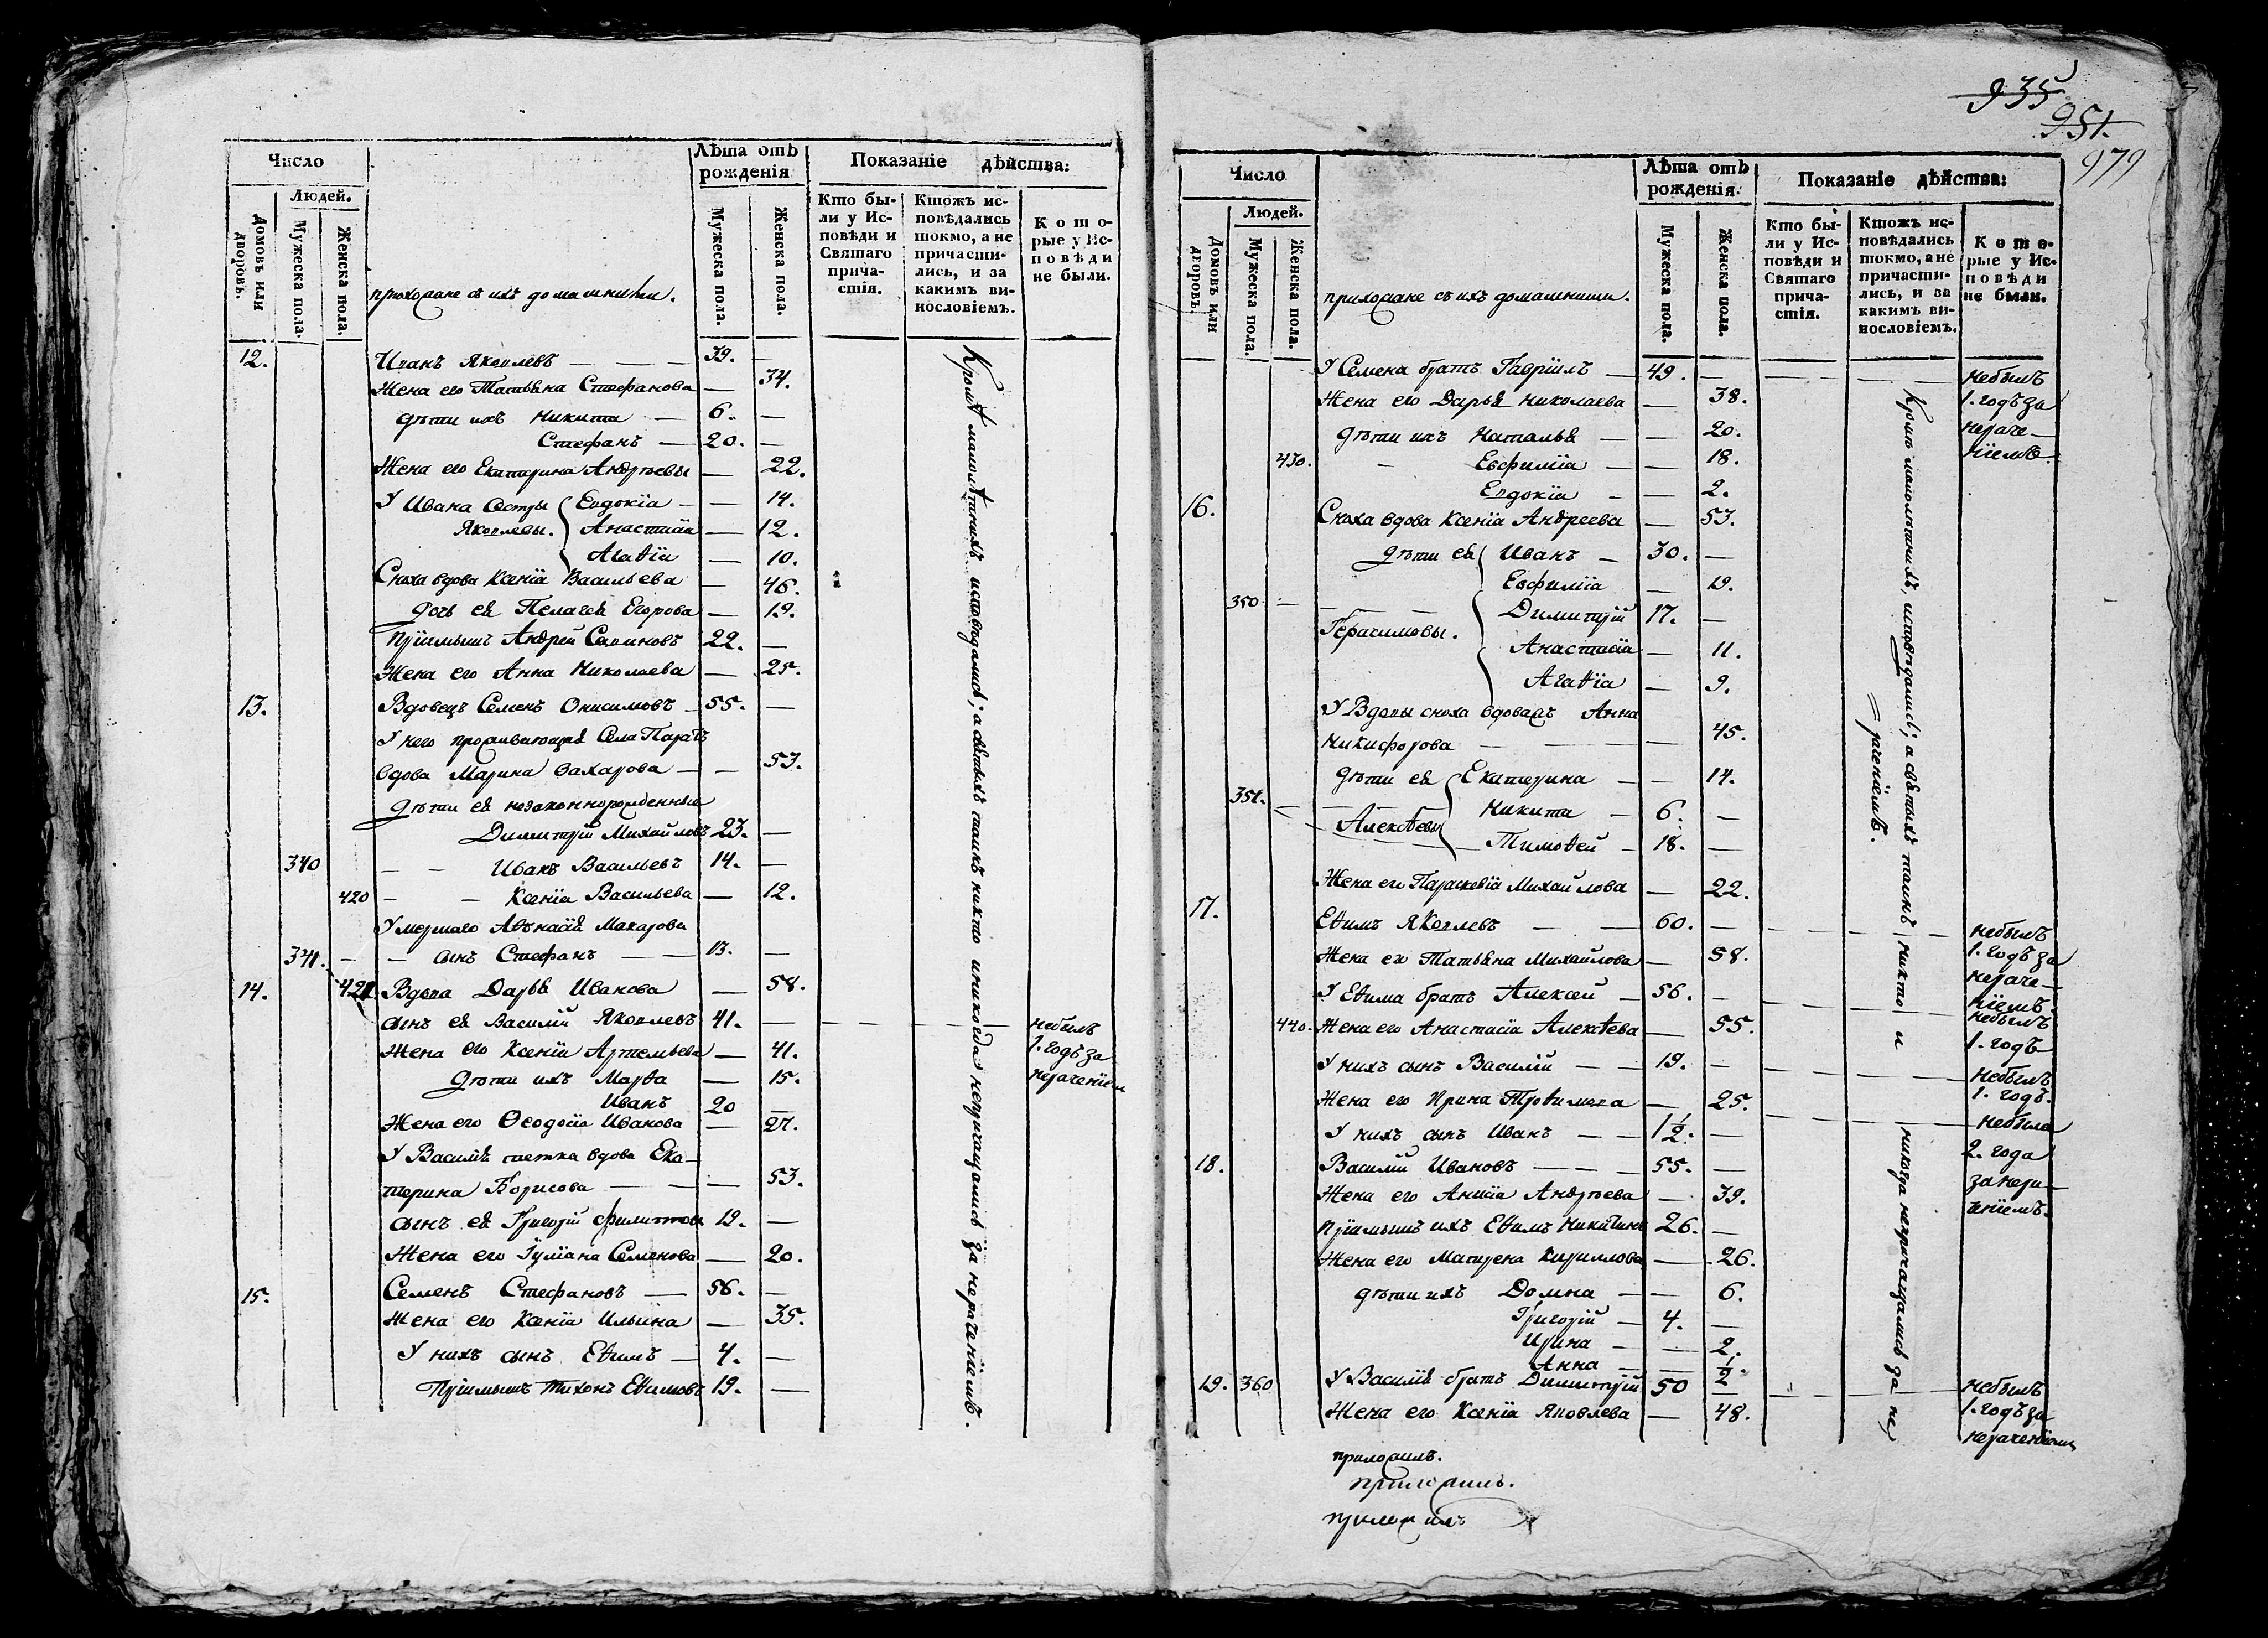 Число
Людей.
Домовъ или дворовъ.
Мужеска пола.
Женска пола.
прихожане съ ихъ домашними.
Лѣта отъ рожденія
Мужеска пола.
Женска пола.
Показаніе дѣйства:
Кто были у Исповѣди и Святаго причастія.
Ктожъ исповѣдались токмо, а не причастились, и за какимъ винословіемъ.
Которые у Исповѣди не были.
12. Иванъ Яковлевъ — — — 39. —
Жена его Татьяна Стефанова — 34.
дѣти ихъ Никита — 6. —
Стефанъ — 20. —
Жена его Екатерина Андрѣевы — 22.
У Ивана Сестры Евдокія — — 14.
Яковлевы. Анастасія — 12.
Агаѳія — 10.
Сноха вдова Ксенія Васильева — 46.
дочь ея Пелагея Егорова — 19.
Пріимышъ Андрей Савиновъ 22. —
Жена его Анна Николаева — 25.
13. Вдовецъ Семенъ Онисимовъ — 55. —
У него проживающая Села Паратъ
вдова Марина Захарова — — 53.
дѣти ея незаконнорожденные
Димитрій Михайловъ 23. —
340 — — Иванъ Васильевъ 14. —
420 — — Ксенія Васильева — 12.
Умершаго Аѳанасія Макарова
341. — — сынъ Стефанъ — — 13. —
14. 421 Вдова Дарья Иванова — 58.
сынъ ея Василій Яковлевъ 41. — — — — — небылъ
Жена его Ксенія Артемьева — 41. 1. годъ за
дѣти ихъ Марѳа — 15. нераченіем
Иванъ 20 —
Жена его Ѳеодосія Иванова — 27.
У Василія тетка вдова Ека—
терина Борисова — — — 53.
сынъ ея Григорій Филиппов 19. —
Жена его Іуліана Семенова — 20.
15. Семенъ Стефановъ — 56. —
Жена его Ксенія Ильина — 35.
У нихъ сынъ Еѳимъ — 4. —
Пріимышъ Тихонъ Еѳимовъ 19. —
Кромѣ малолѣтнихъ исповѣдались; а святыхъ таинъ никто и никогда непричащались за нераченіемъ.
935
951.
979
Число
Людей.
Домовъ или дворовъ.
Мужеска пола.
Женска пола.
прихожане съ ихъ домашними.
Лѣта отъ рожденія.
Мужеска пола.
Женска пола.
Показаніе дѣйства:
Кто были у Исповѣди и Святаго причастія.
Ктожъ исповѣдались токмо, а не причастились, и за какимъ винословіемъ.
Которые у Исповѣди не были.
У Семена братъ Гавріилъ — 49. — — — — небылъ
Жена его Дарья Николаева — 38. 1. годъ за
дѣти ихъ Наталья — — 20. нераче—
430. — Евфимія — — 18. ніемъ.
Евдокія — — 2.
16. Сноха вдова Ксенія Андреева — 53.
дѣти ея Иванъ — 30. —
Евфимія — 19.
350 — — — Димитрій 17. —
Герасимовы. Анастасія — 11.
Агаѳія — 9.
У Вдовы сноха вдоважъ Анна
Никифорова — — — 45.
дѣти ея Екатерина — — 14.
351. — — Никита — 6. —
Алексѣевы — Тимоѳей — 18. —
Жена его Параскевія Михайлова — 22.
17. Еѳимъ Яковлевъ — — 60. — — — — небылъ
Жена его Татьяна Михайлова — 58. 1. годъ за
нераче—
У Еѳима братъ Алексей — 56. — — — — ніемъ.
небылъ
440. Жена его Анастасія Алексѣева — 55. 1. годъ
У нихъ сынъ Василій — — 19. — — — — небылъ
1. годъ.
Жена его Ирина Троѳимова — 25. — — — небыла
У нихъ сынъ Иванъ — — 1 1/2. — 2. года
18. Василій Ивановъ — — — 55. — за нера—
Жена его Анисія Андрѣева — 39. ченіемъ.
Пріимышъ ихъ Еѳимъ Никитинъ 26. —
Жена его Матрена Кириллова — 26.
дѣти ихъ Домна — — 6.
Григорій — 4. —
Ирина — — 2.
Анна — — 1/2.
19. 360 У Василія братъ Димитрій 50 — — — — небылъ
Жена его Ксенія Яковлева — 48. 1. годъ за
нераченіемъ
Кромѣ малолѣтнихъ, исповѣдались; а святыхъ таинъ никто и никогда непричащались за не=
=раченіемъ.
приложилъ.
приложилъ.
приложилъ